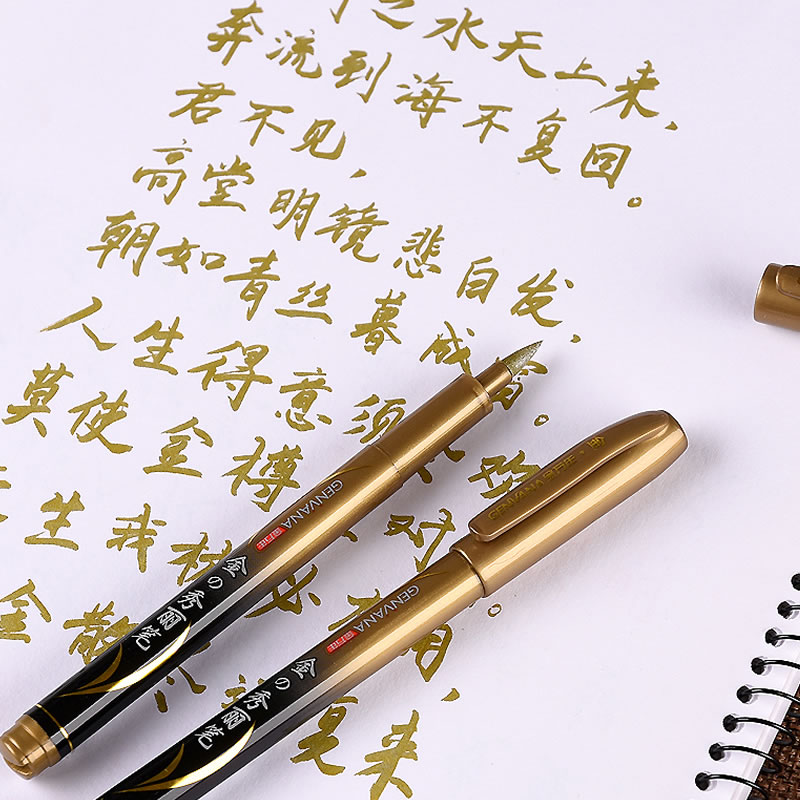 之水天上来，
奔流到海不复回。
君不见，
高堂明镜悲白发，
朝如青丝暮成
人生得意须
莫使金樽 对
生我材必 用，
金散 复来
GENVANA 金万年
金の秀丽笔
GENVANA 金万年
GENVANA 金万年
金の秀丽笔